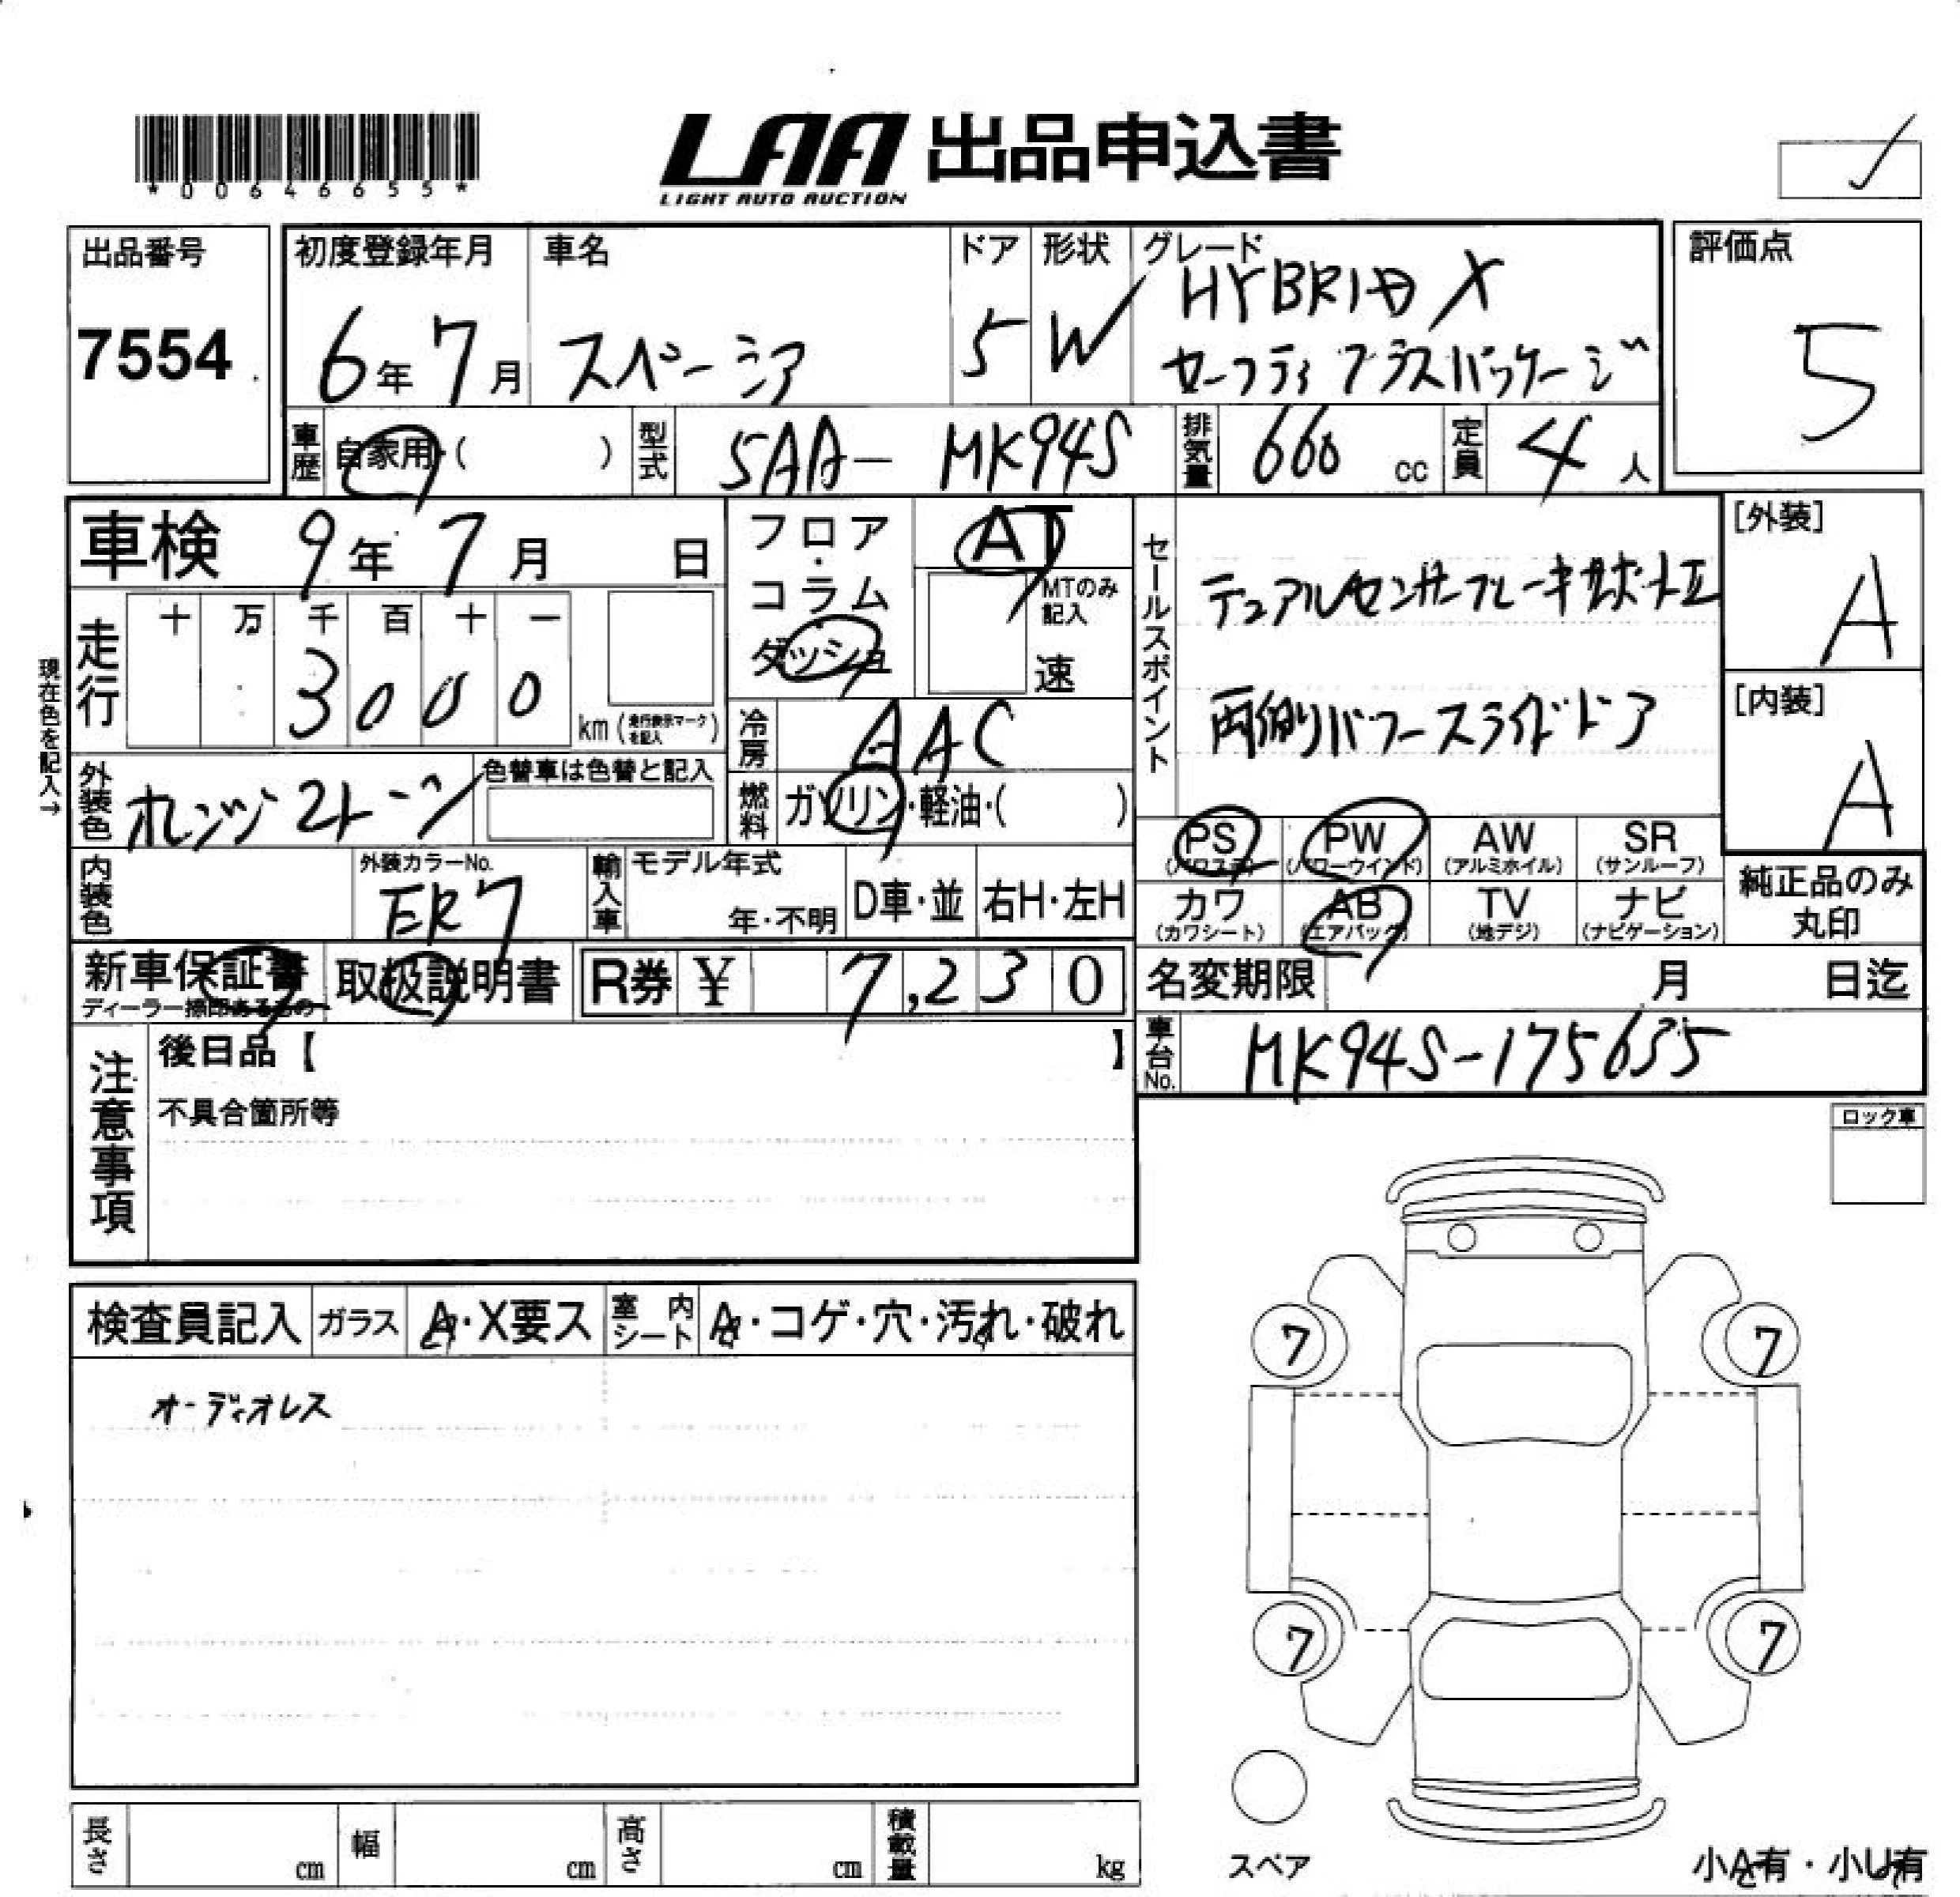 *00646655*
LAA 出品申込書
LIGHT AUTO AUCTION
出品番号
7554
初度登録年月
6年7月
車名
スペーシア
ドア
5
形状
W
グレード
HYBRID X
セーフティプラスパッケージ
評価点
5
車歴 自家用・( )
型式 5AA- MK94S
排気量 660 cc
定員 4 人
車検 9年7月 日
走行 十 万 千 百 十 一
3 0 0 0
km(走行表示マークを記入)
現在色を記入→
フロア・コラム・ダッシュ
AT
MTのみ記入
速
冷房 AAC
燃料 ガソリン・軽油・( )
外装色 オレンジ2トーン
色替車は色替と記入
内装色
外装カラーNo.
ER7
輸入車 モデル年式
年・不明
D車・並
右H・左H
新車保証書
ディーラー捺印あるもの
取扱説明書
R券 ¥ 7,230
セールスポイント
デュアルセンサーブレーキサポートII
両側パワースライドドア
[外装]
A
[内装]
A
PS (パワステ)
PW (パワーウインド)
AW (アルミホイル)
SR (サンルーフ)
カワ (カワシート)
AB (エアバッグ)
TV (地デジ)
ナビ (ナビゲーション)
純正品のみ丸印
名変期限 月 日迄
車台No. MK94S-175655
注意事項
後日品【 】
不具合箇所等
ロック車
検査員記入 ガラス A・X要ス 室内シート A・コゲ・穴・汚れ・破れ
オーディオレス
7
7
7
7
スペア
小A有・小U有
長さ cm 幅 cm 高さ cm 積載量 kg